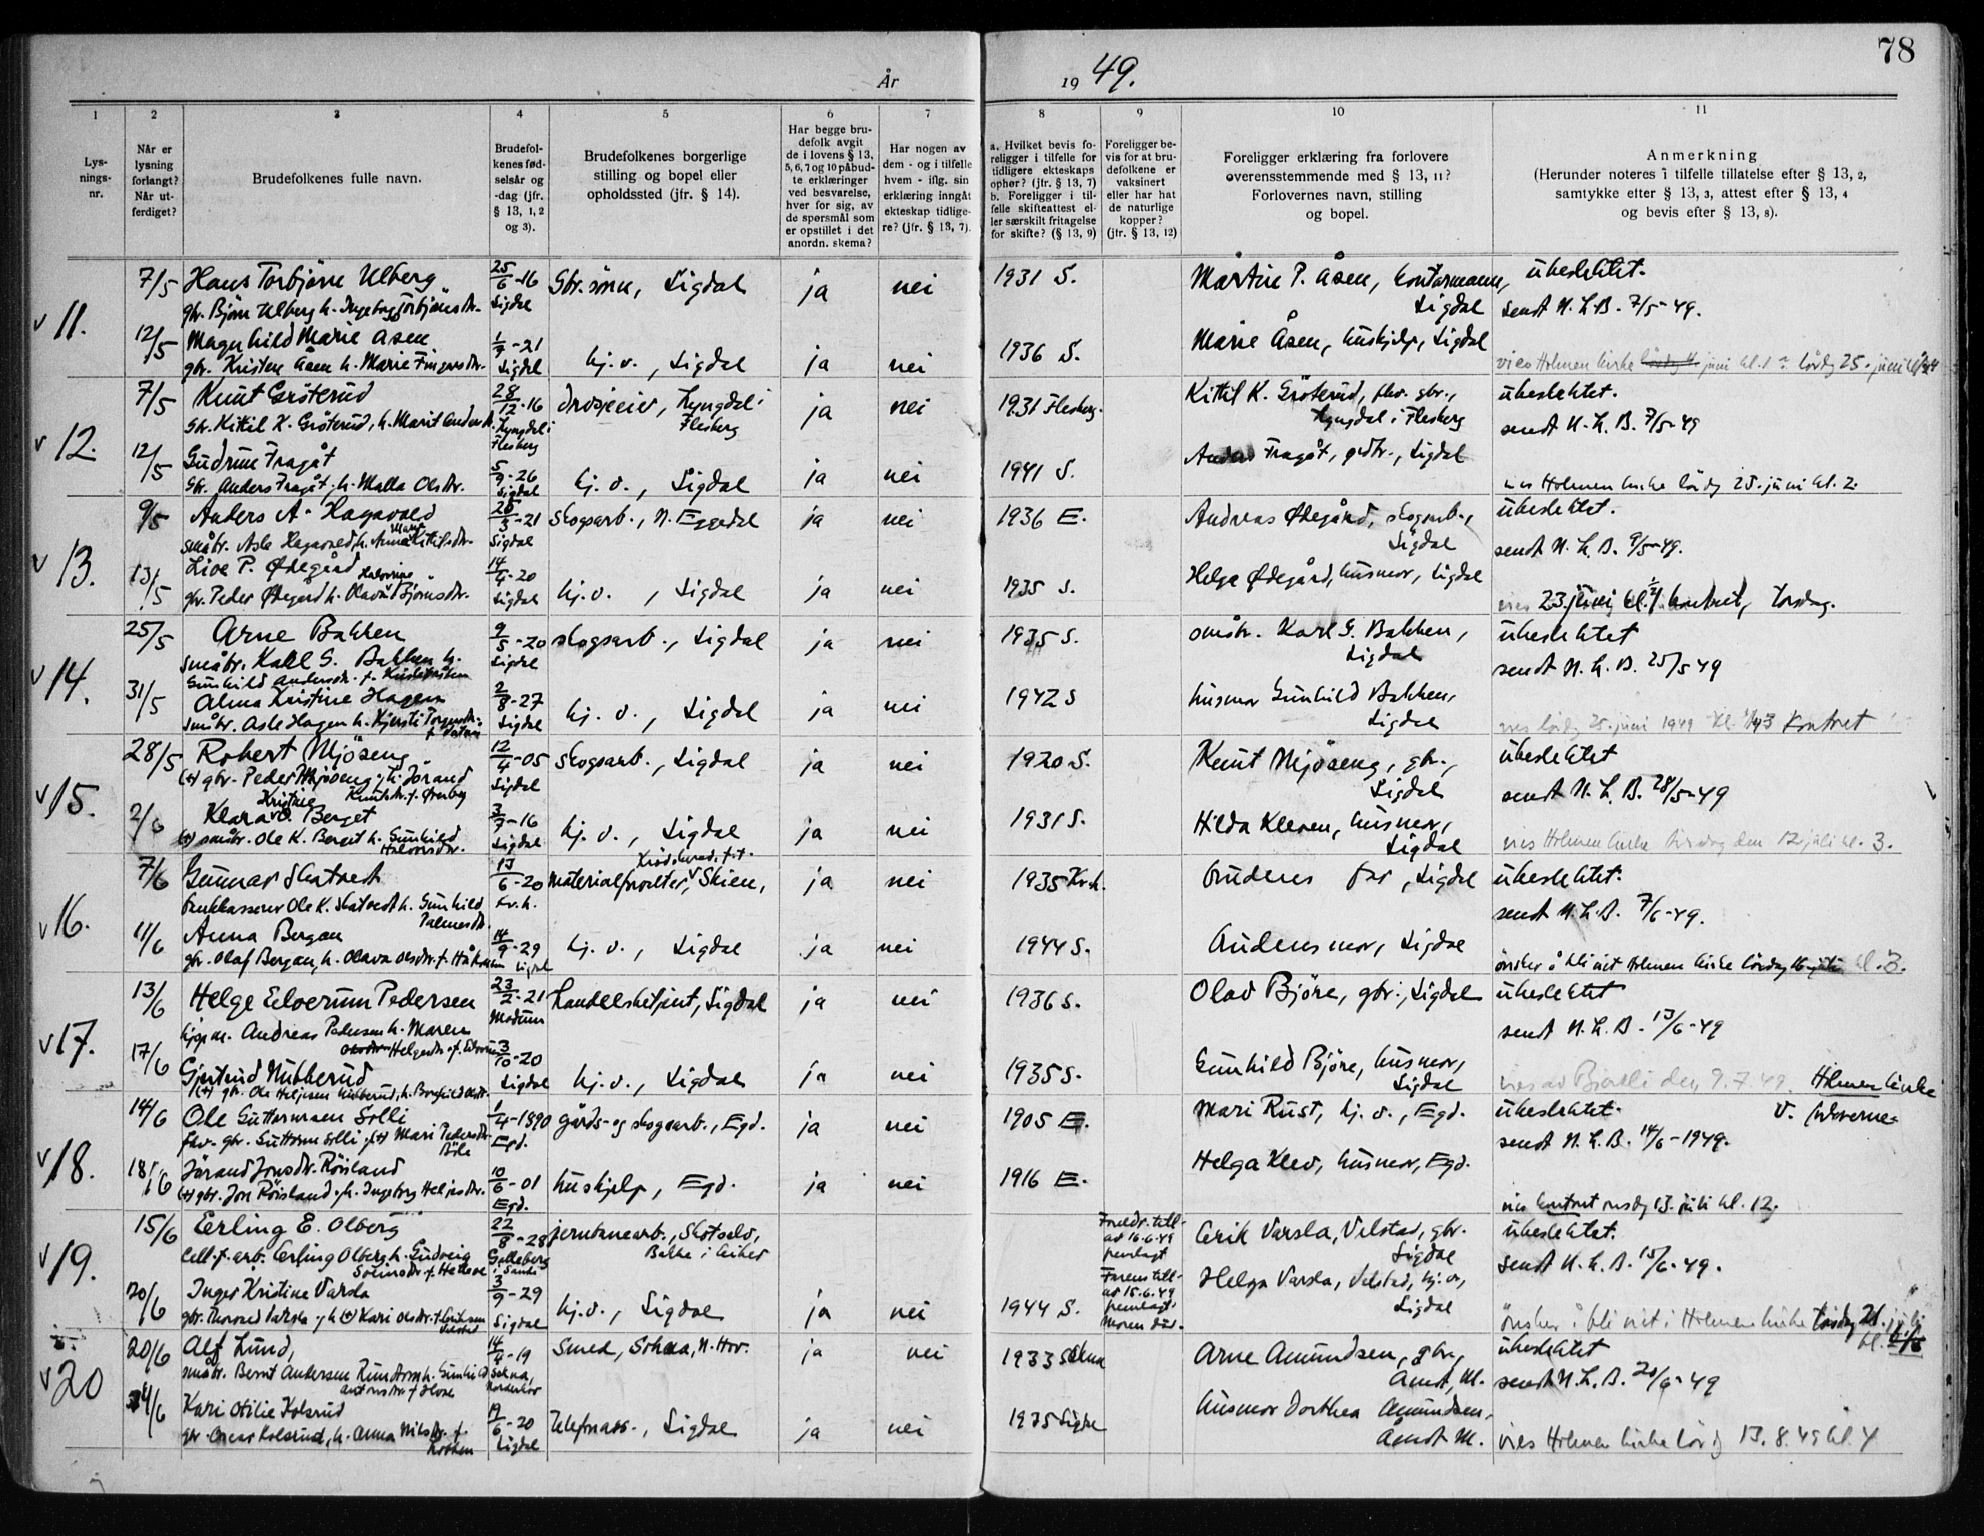 78
År 1949.
1 2 3 4 5 6 7 8 9 10 11
Lys-
nings-
nr.
Når er
lysning
forlangt?
Når ut-
ferdiget?
Brudefolkenes fulle navn.
Brudefol-
kenes fød-
selsår og
-dag (jfr.
§ 13, 1, 2
og 3).
Brudefolkenes borgerlige
stilling og bopel eller
opholdssted (jfr. § 14).
Har begge bru-
defolk avgit
de i lovens § 13,
5, 6, 7 og 10 påbud-
te erklæringer
ved besvarelse,
hver for sig, av
de spørsmål som
er opstillet i det
anordn. skema?
Har nogen av
dem - og i tilfelle
hvem - iflg. sin
erklæring inngåt
ekteskap tidlige-
re? (jfr. § 13, 7).
a. Hvilket bevis fo-
religger i tilfelle for
tidligere ekteskaps
ophør? (jfr. § 13, 7)
b. Foreligger i til-
felle skifteattest el-
ler særskilt fritagelse
for skifte? (§ 13, 9)
Foreligger be-
vis for at bru-
defolkene er
vaksinert
eller har hat
de naturlige
kopper?
(jfr. § 13, 12)
Foreligger erklæring fra forlovere
overensstemmende med § 13, 11?
Forlovernes navn, stilling
og bopel.
Anmerkning
(Herunder noteres i tilfelle tillatelse efter § 13, 2,
samtykke efter § 13, 3, attest efter § 13, 4
og bevis efter § 13, 8).
v 11.
7/5 Hans Torbjörn Ulberg 25/6-16 Gbr.sönn, Sigdal ja nei 1931 S. Martin P. Åsen, kontormann, ubeslektet.
gbr. Björn Ulberg h. Ingeborg Torbjörnsdr. Sigdal Sigdal sendt N.L.B. 7/5-49.
12/5 Magnhild Marie Åsen 1/9-21 hj.v., Sigdal ja nei 1936 S. Marie Åsen, hushjelp, Sigdal
gbr. Kristen Åsen h. Marie Fingarsdr. Sigdal vies Holmen kirke juni kl. 1 lördag 25. juni
v 12.
7/5 Knut Gröterud 28/12-16 drosjeeier, Lyngdal i ja nei 1931 Flesberg. Kittil K. Gröterud, fhv. gbr., ubeslektet.
Gbr. Kittil K. Gröterud, h. Marit Andersdr. Lyngdal i Flesberg Flesberg Lyngdal i Flesberg sendt N.L.B. 7/5-49
12/5 Gudrun Fragåt 5/9-26 hj.v., Sigdal ja nei 1941 S. Anders Fragåt, grdbr., Sigdal
Gbr. Anders Fragåt, h. Malla Olsdr. Sigdal vies Holmen kirke lördg 25. juni kl. 2.
v 13.
9/5 Anders A. Hagavold 26/3-21 skogsarb., N. Eggedal ja nei 1936 E. Andreas Ødegård, skogsarb., ubeslektet.
småbr. Asle Hagavold h. Anna Marie Kittilsdr. Sigdal Sigdal sendt N.L.B. 9/5-49.
13/5 Live P. Ødegård 14/4-20 hj.v., Sigdal ja nei 1935 S. Helga Ødegård, husmor, Sigdal
gbr. Peder Ødegård h. Olava Halvorine Björnsdr. Sigdal vies 23. juni kl. 1 1/2 kontoret, torsdag.
v 14.
25/5 Arne Bakken 9/5-20 skogsarb., Sigdal ja nei 1935 S. småbr. Karl G. Bakken, ubeslektet
småbr. Karl G. Bakken h. Sigdal Sigdal sendt N.L.B. 25/5 49
Gunhild Andersdr. f.
31/5 Alma Kristine Hagen 2/8-27 hj.v., Sigdal ja nei 1942 S husmor Gunhild Bakken,
småbr. Asle Hagen h. Kjersti Torgersdr. Sigdal Sigdal vies lördg 25. juni 1949 kl. Kontoret
v 15.
28/5 Robert Mjöseng 12/4-05 Skogsarb., Sigdal ja nei 1920 S. Knut Mjöseng, gbr., ubeslektet
(+) gbr. Peder Mjöseng, h. Jörand Sigdal Sigdal sendt N.L.B. 28/5-49
Knutsdr. f. Överby
2/6 Klara Kristine O. Berget 3/7-16 hj.v., Sigdal ja nei 1931 S. Hilda Kleven, husmor,
(+) småbr. Ole K. Berget h. Gunhild Halvorsdr. Sigdal Sigdal vies Holmen kirke tirsdag den 12 juli kl. 3.
v 16.
7/6 Gunnar Skatvedt 17/6-20 materialforvalter, Krödsherad, f.t. Skien, ja nei 1935 Kr.h. brudens far, Sigdal ubeslektet.
bankkasserer Ole K. Skatvedt h. Gunhild Kr.h. sendt N.L.B. 7/6-49.
Palmesdr.
11/6 Anna Bergan 14/9-29 hj.v., Sigdal ja nei 1944 S. brudens mor, Sigdal
gbr. Olaf Bergan, h. Olava Olsdr. f. Sigdal önsker å bli viet Holmen kirke lördag 16 juli kl. 3.
v 17.
13/6 Helge Elverum Pedersen 23/2-21 handelsbetjent, Sigdal ja nei 1936 S. Olav Björe, gbr., Sigdal ubeslektet
kjöpm. Andreas Pedersen h. Maren Modum sendt N.L.B. 13/6-49
Helgesdr. f. Elverum
17/6 Gjertrud Nubberud 3/10-20 hj.v., Sigdal ja nei 1935 S. Gunhild Björe, husmor,
(+) gbr. Ole Heljesen Nubberud, h. Borghild Olsdr. Sigdal Sigdal vies av Bjørkli den 9.7.49. Holmen kirke
v 18.
14/6 Ole Guttormsen Solli 1/4-1890 gårds- og skogsarb., Egd. ja nei 1905 E. Mari Rust, hj.v., Egd. ubeslektet. v. forloverne.
fhv. gbr. Guttorm Solli, (+) Mari Pedersdr. Böle Egd. sendt N.L.B. 14/6-1949.
18/6 Jörand Jonsdr. Röisland 10/6-01 hushjelp, Egd. ja nei 1916 E. Helga Klev, husmor, Egd.
(+) gbr. Jon Röisland, h. Ingeborg Heljesdr. Egd. vies kontoret onsdg 13. juli kl. 12.
v 19.
15/6 Erling E. Olberg 22/8-28 jernbanearb., Skotselv, Foreldr. till- Eirik Varsla, Velstad, gbr. ubeslektet.
cell.f.arb. Erling Olberg h. Gudveig Galleberg i Sande Bakke i Eiker av 16.6.49 fremlagt Sigdal sendt N.L.B. 15/6-49.
20/6 Inger Kristine Varsla 3/9-29 hj.v., Sigdal ja nei 1944 S. Farens till- Helga Varsla, Velstad, hj.v.,
gbr. Varsla, h. (+) Kari Olsdr. Sigdal av 15.6.49 fremlagt. Moren död. Sigdal önsker å bli viet i Holmen kirke lördag juli
v 20
20/6 Alf Lund, 14/4-19 Smed, Sokna, N. Hov. ja nei 1933 Sokna Arne Amundsen, gbr., ubeslektet
småbr. Bernt Andersen h. Gunhild Sokna, Norderhov Åmot, M. sendt N.L.B. 20/6-49
24/6 Kari Otilie Kolsrud 19/6-20 telefonass., Sigdal ja nei 1935 Sigdal husmor Dorthea Amundsen,
gbr. Oscar Kolsrud, h. Anna Nilsdr. f. Sigdal Åmot M. vies Holmen kirke lördg 13.8.49 kl. 4